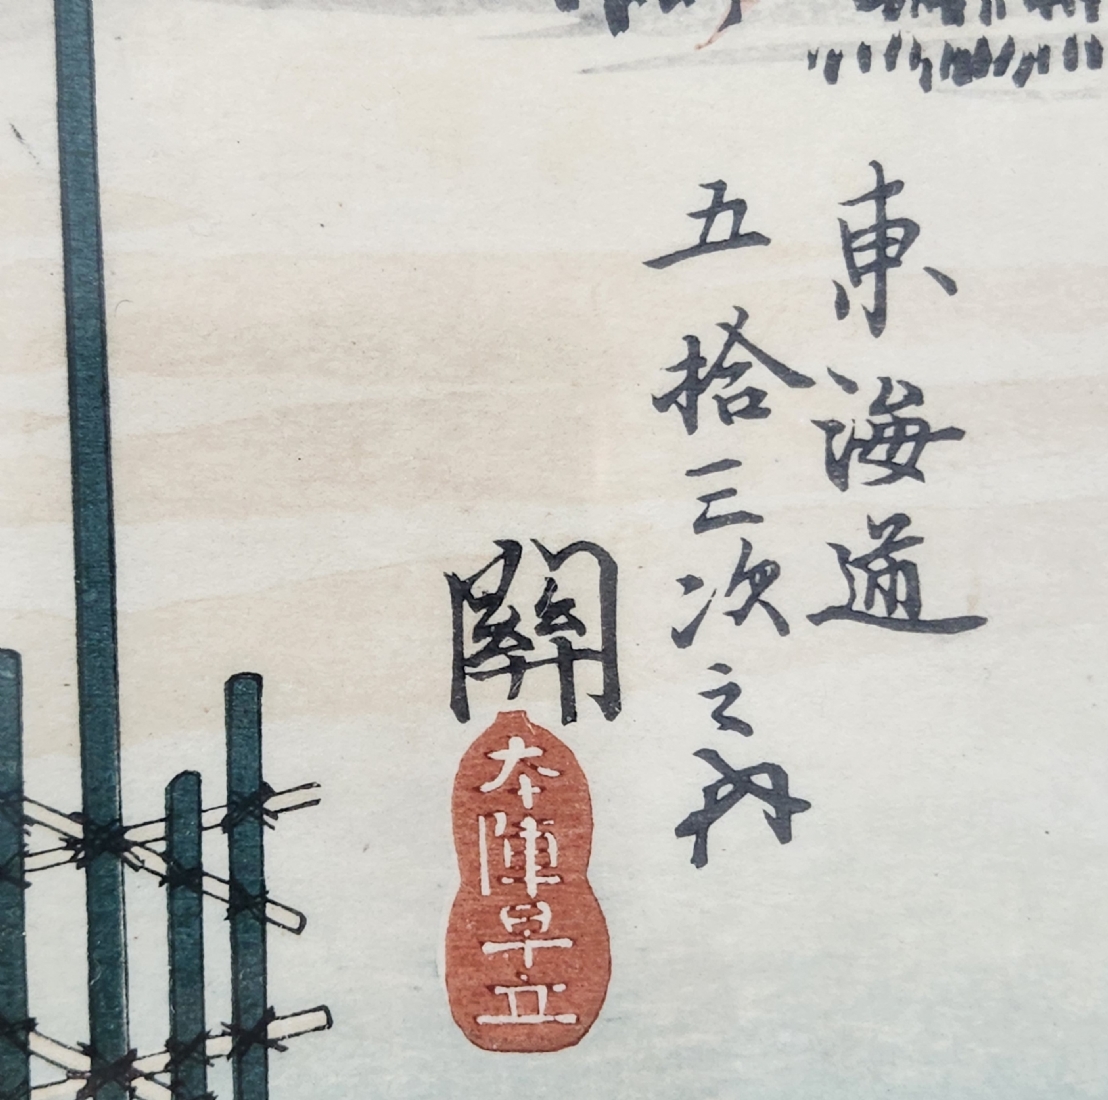 東海道
五拾三次之内
關
本陣早立